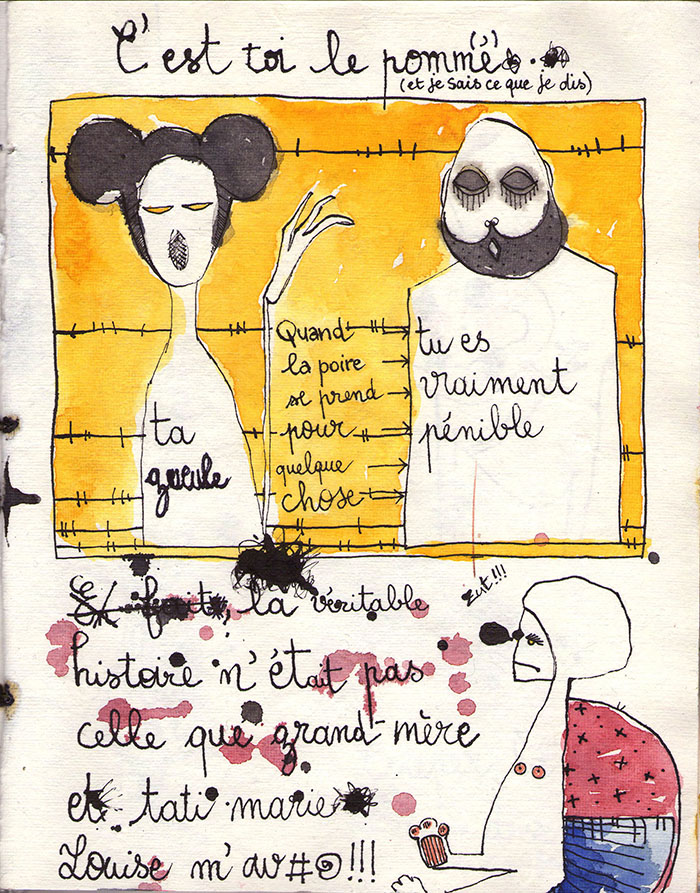 C'est toi le pommé(')
(et je sais ce que je dis)
ta
gueule
Quand
la poire
se prend
pour
quelque
chose
tu es
vraiment
pénible
Zut!!!
Ce fait, la véritable
histoire n'était pas
celle que grand-mère
et tati marie
Louise m'av#@!!!